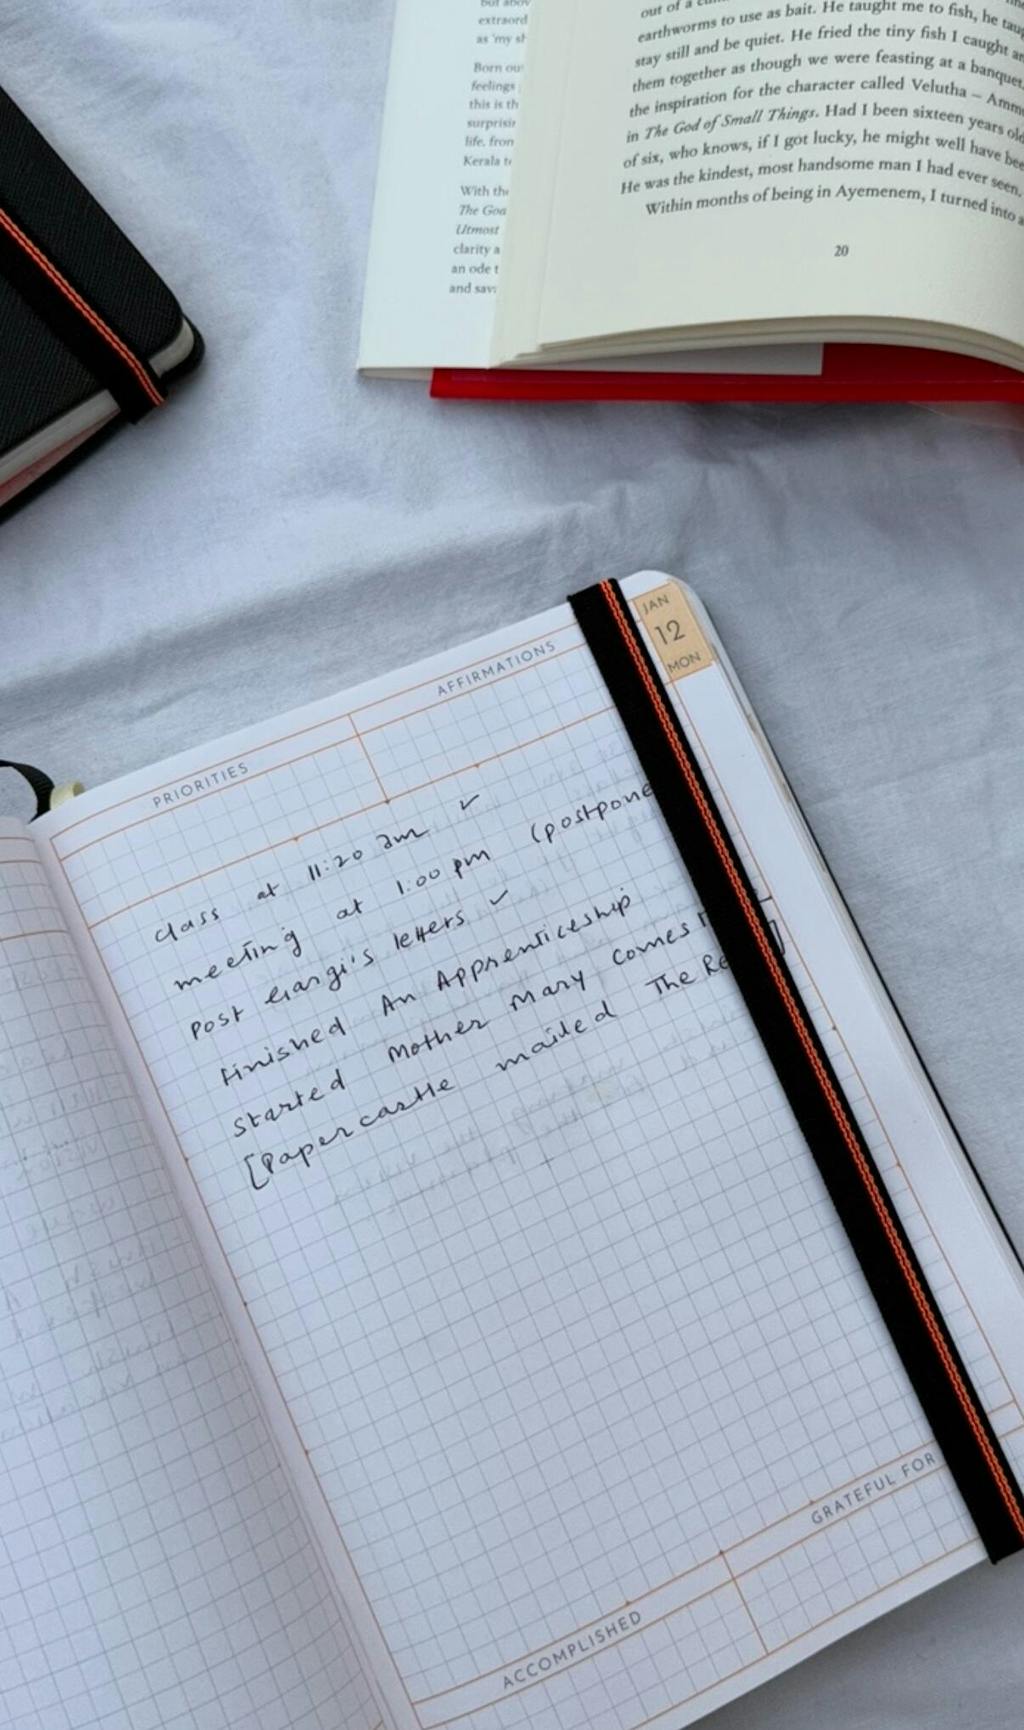 extraord
as 'my sh
Born ou
feelings
this is th
surprisin
life, from
Kerala to
With the
The God
Utmost
clarity a
an ode t
and sav
out of a
earthworms to use as bait. He taught me to fish, he taug
stay still and be quiet. He fried the tiny fish I caught an
them together as though we were feasting at a banquet.
the inspiration for the character called Velutha – Ammu
in The God of Small Things. Had I been sixteen years old
of six, who knows, if I got lucky, he might well have bee
He was the kindest, most handsome man I had ever seen.
Within months of being in Ayemenem, I turned into a
20
JAN
12
MON
PRIORITIES
AFFIRMATIONS
class at 11:20 am ✓
meeting at 1:00 pm (postpone
post Gargi's letters ✓
Finished An Apprenticeship
started Mother Mary Comes
[Papercastle mailed The Re ]
GRATEFUL FOR
ACCOMPLISHED